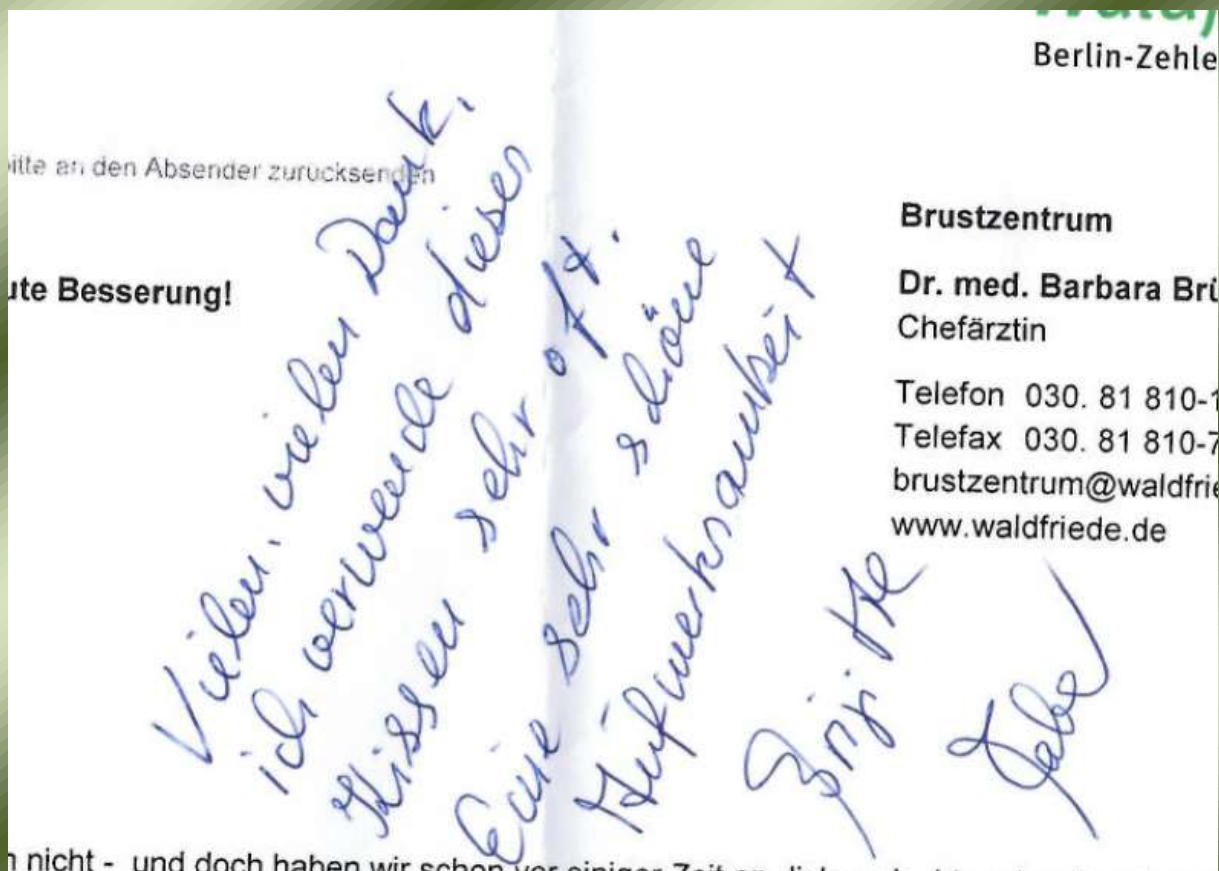 Berlin-Zehle
bitte an den Absender zurücksenden
ute Besserung!
Brustzentrum
Dr. med. Barbara Brü
Chefärztin
Telefon 030. 81 810-1
Telefax 030. 81 810-7
brustzentrum@waldfrie
www.waldfriede.de
Vielen, vielen Dank,
ich verwende dieses
Kissen sehr oft.
Eine sehr schöne
Aufmerksamkeit
Brigitte
n nicht - und doch haben wir schon vor einiger Zeit an